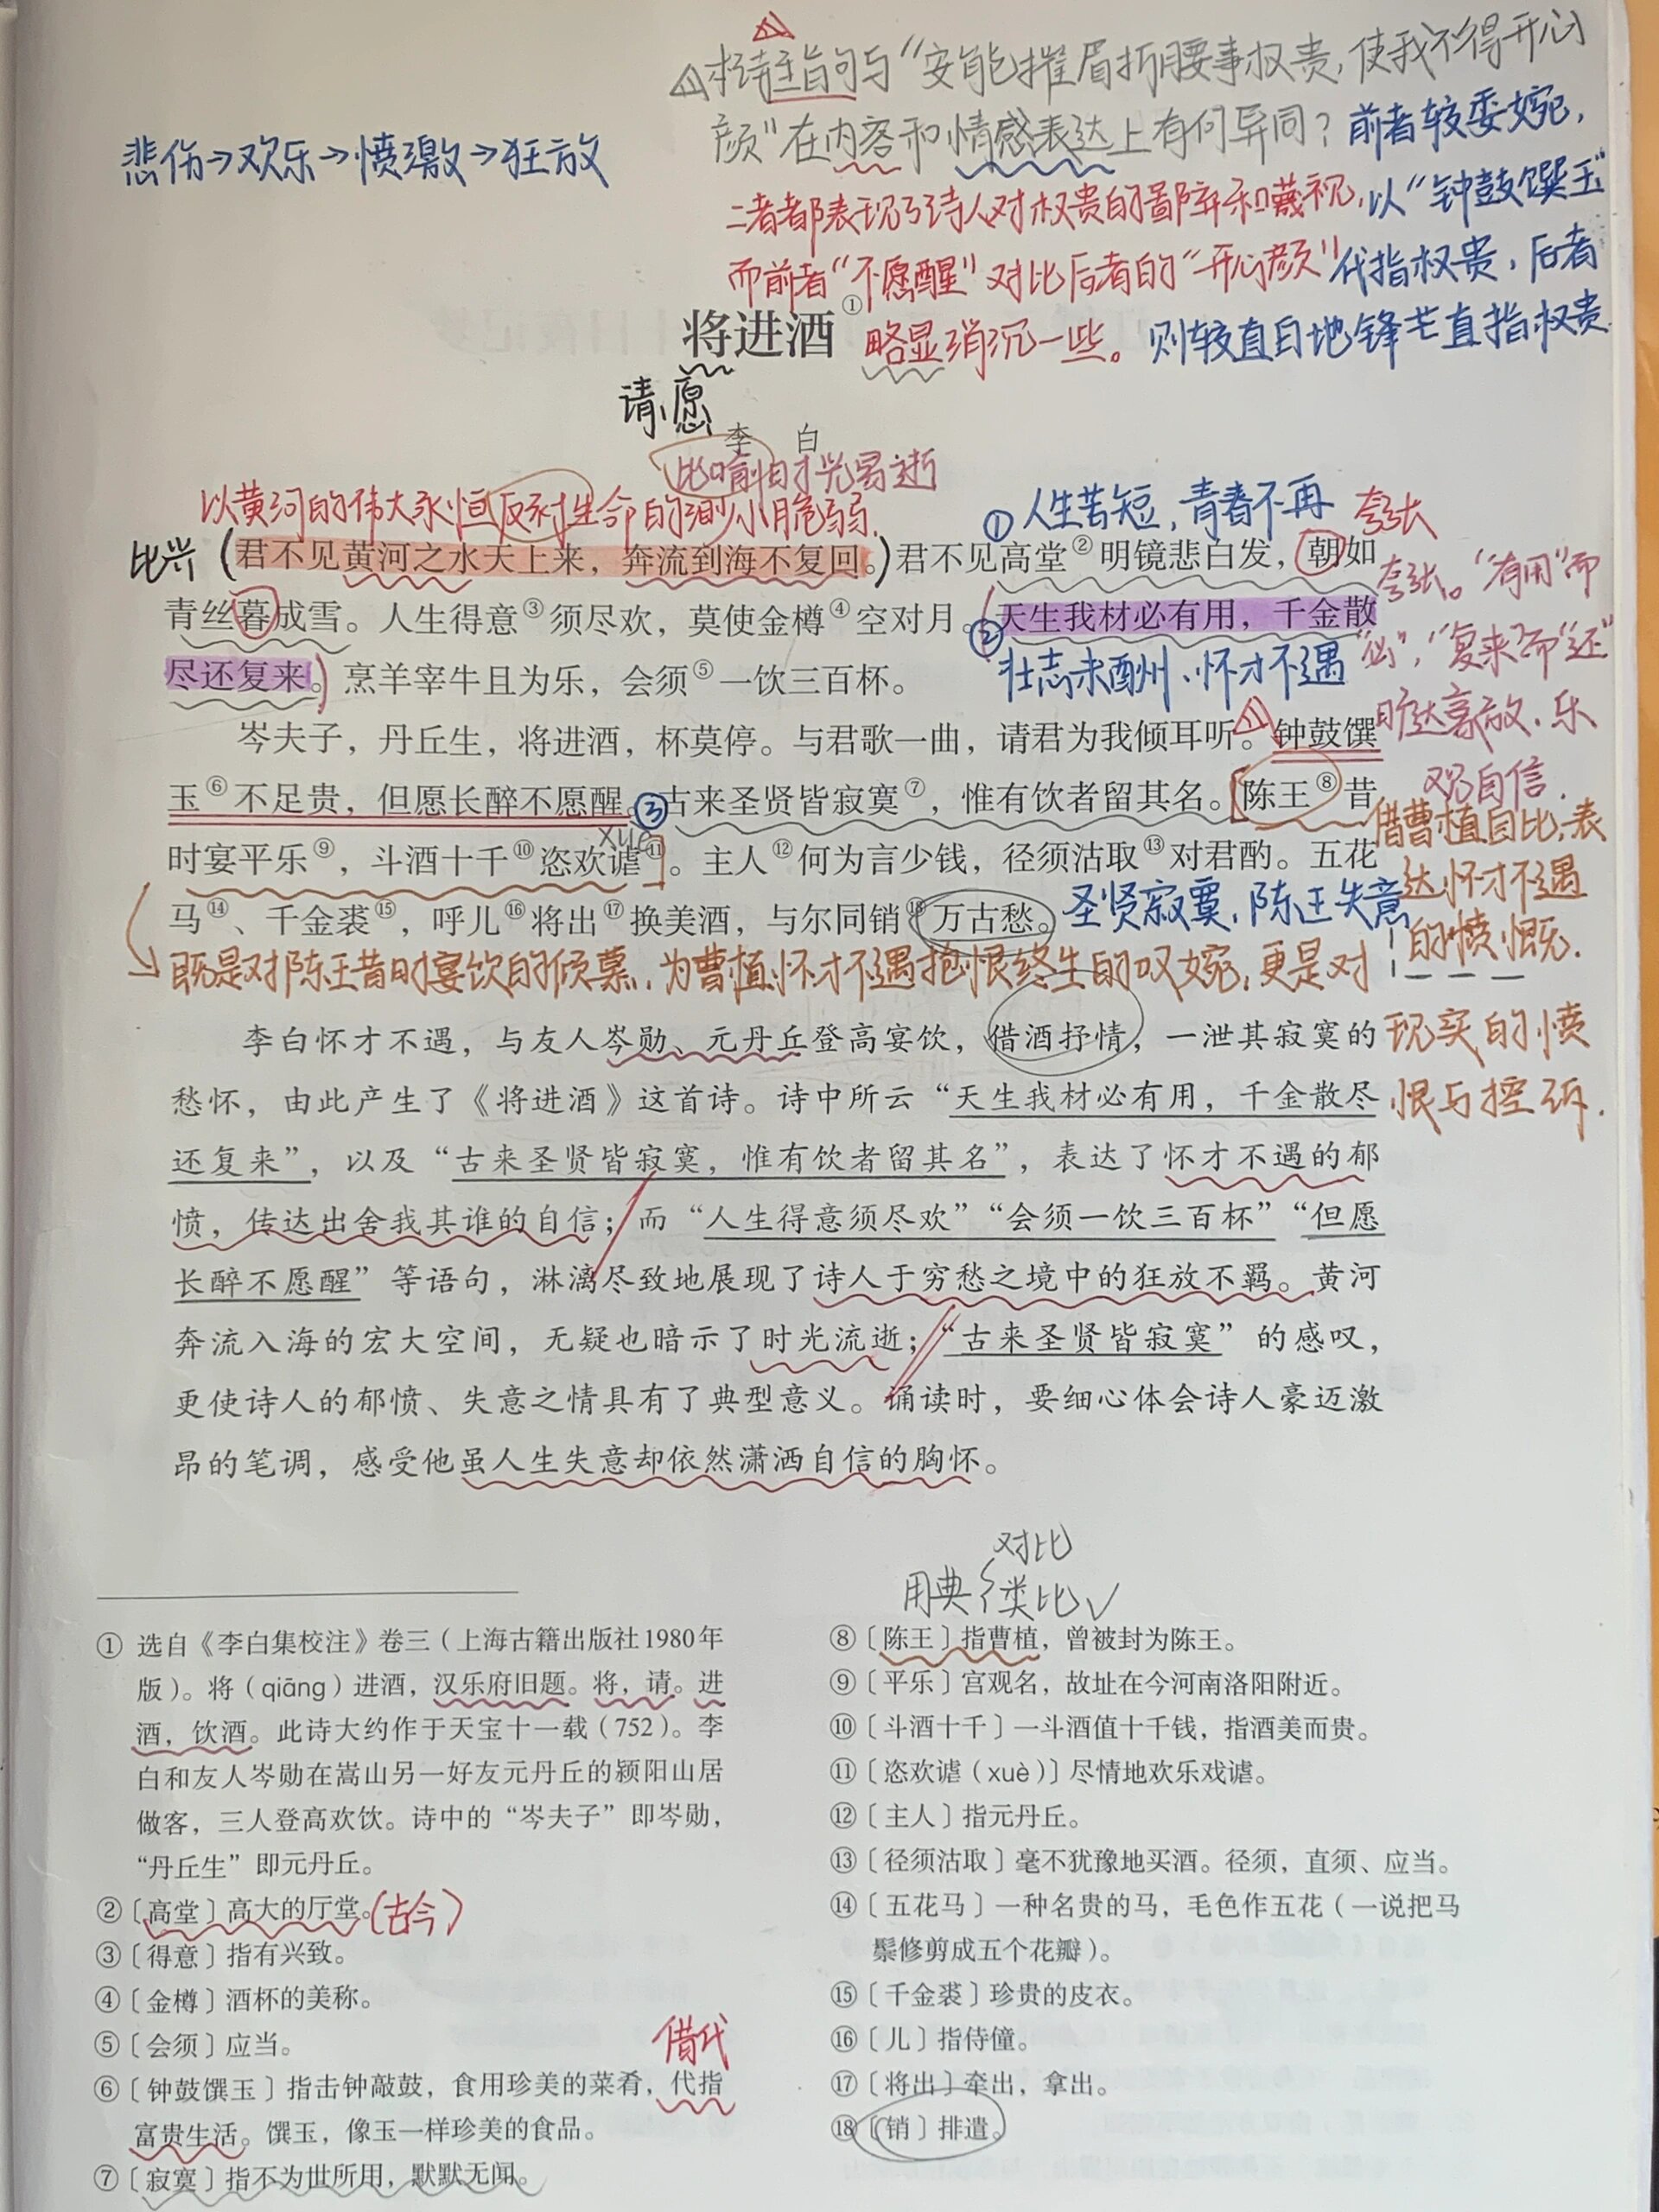 本诗主旨句与“安能摧眉折腰事权贵,使我不得开心
颜”在内容和情感表达上有何异同?前者较委婉,
悲伤→欢乐→愤激→狂放
二者都表现了诗人对权贵的鄙弃和蔑视,以“钟鼓馔玉”
而前者“不愿醒”对比后者的“开心颜”代指权贵,后者
将进酒①
略显消沉一些。则较直白地锋芒直指权贵.
请,愿
李 白
比喻时光易逝
以黄河的伟大永恒反衬生命的渺小脆弱.
①人生苦短,青春不再
夸张
比兴
(君不见黄河之水天上来,奔流到海不复回。)君不见高堂②明镜悲白发,朝如
青丝暮成雪。人生得意③须尽欢,莫使金樽④空对月。天生我材必有用,千金散
尽还复来。烹羊宰牛且为乐,会须⑤一饮三百杯。
②壮志未酬、怀才不遇
夸张。“有用”而
“必”,“复来”而“还”
旷达豪放、乐
观自信.
岑夫子,丹丘生,将进酒,杯莫停。与君歌一曲,请君为我倾耳听。钟鼓馔
玉⑥不足贵,但愿长醉不愿醒。③古来圣贤皆寂寞⑦,惟有饮者留其名。陈王⑧昔
xuè
时宴平乐⑨,斗酒十千⑩恣欢谑⑪。主人⑫何为言少钱,径须沽取⑬对君酌。五花
马⑭、千金裘⑮,呼儿⑯将出⑰换美酒,与尔同销⑱万古愁。
圣贤寂寞,陈王失意
借曹植自比,表
达怀才不遇
的愤慨.
既是对陈王昔时宴饮的倾慕,为曹植怀才不遇抱恨终生的叹婉,更是对
现实的愤
恨与控诉.
李白怀才不遇,与友人岑勋、元丹丘登高宴饮,借酒抒情,一泄其寂寞的
愁怀,由此产生了《将进酒》这首诗。诗中所云“天生我材必有用,千金散尽
还复来”,以及“古来圣贤皆寂寞,惟有饮者留其名”,表达了怀才不遇的郁
愤,传达出舍我其谁的自信;而“人生得意须尽欢”“会须一饮三百杯”“但愿
长醉不愿醒”等语句,淋漓尽致地展现了诗人于穷愁之境中的狂放不羁。黄河
奔流入海的宏大空间,无疑也暗示了时光流逝;“古来圣贤皆寂寞”的感叹,
更使诗人的郁愤、失意之情具有了典型意义。诵读时,要细心体会诗人豪迈激
昂的笔调,感受他虽人生失意却依然潇洒自信的胸怀。
对比
用典{类比✓
① 选自《李白集校注》卷三(上海古籍出版社1980年
版)。将(qiāng)进酒,汉乐府旧题。将,请。进
酒,饮酒。此诗大约作于天宝十一载(752)。李
白和友人岑勋在嵩山另一好友元丹丘的颍阳山居
做客,三人登高欢饮。诗中的“岑夫子”即岑勋,
“丹丘生”即元丹丘。
②〔高堂〕高大的厅堂。(古今)
③〔得意〕指有兴致。
④〔金樽〕酒杯的美称。
⑤〔会须〕应当。
借代
⑥〔钟鼓馔玉〕指击钟敲鼓,食用珍美的菜肴,代指
富贵生活。馔玉,像玉一样珍美的食品。
⑦〔寂寞〕指不为世所用,默默无闻。
⑧〔陈王〕指曹植,曾被封为陈王。
⑨〔平乐〕宫观名,故址在今河南洛阳附近。
⑩〔斗酒十千〕一斗酒值十千钱,指酒美而贵。
⑪〔恣欢谑(xuè)〕尽情地欢乐戏谑。
⑫〔主人〕指元丹丘。
⑬〔径须沽取〕毫不犹豫地买酒。径须,直须、应当。
⑭〔五花马〕一种名贵的马,毛色作五花(一说把马
鬃修剪成五个花瓣)。
⑮〔千金裘〕珍贵的皮衣。
⑯〔儿〕指侍僮。
⑰〔将出〕牵出,拿出。
⑱〔销〕排遣。